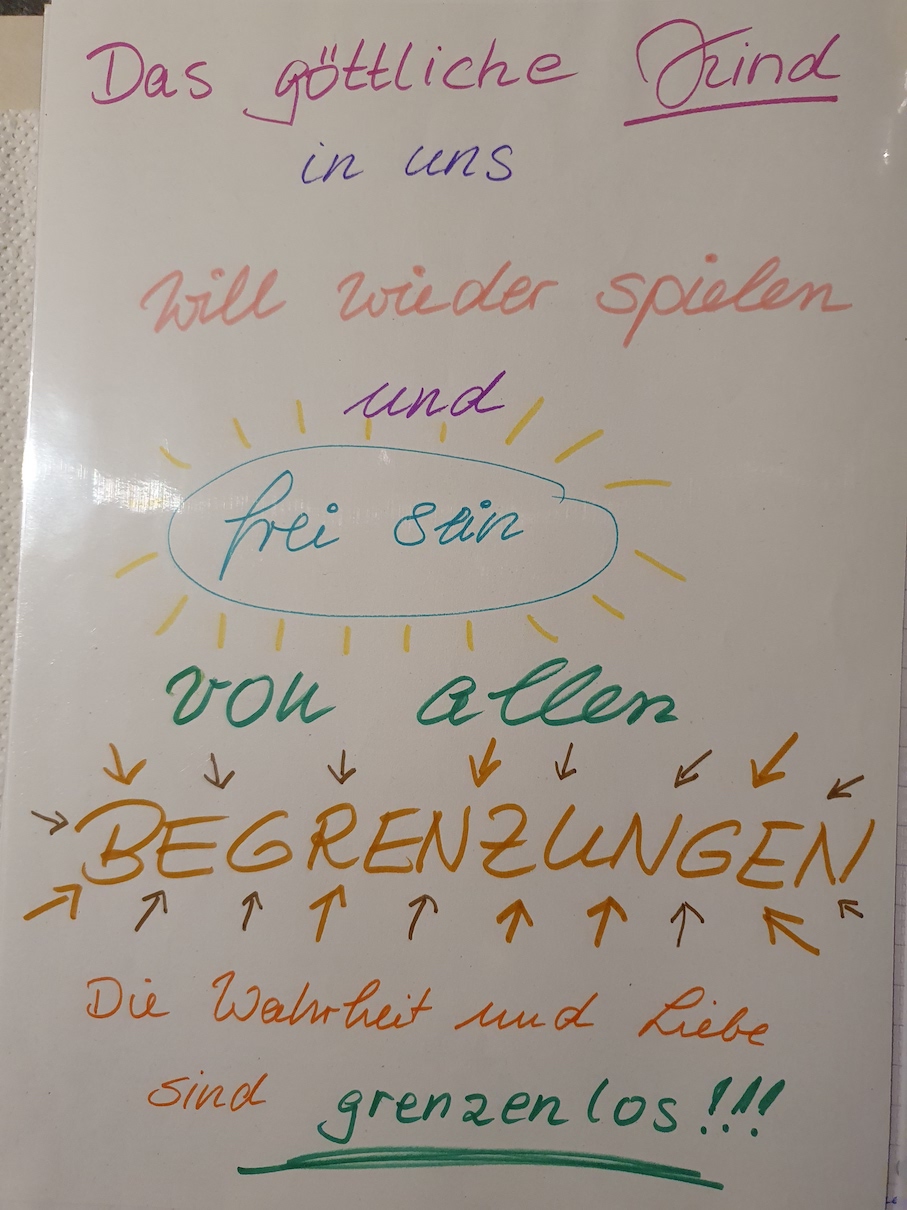 Das göttliche Kind
in uns
will wieder spielen
und
frei sein
von allen
BEGRENZUNGEN
Die Wahrheit und Liebe
sind grenzenlos!!!